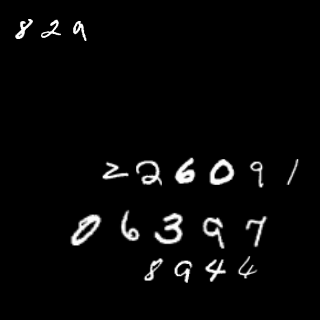 829
226091
06397
8944